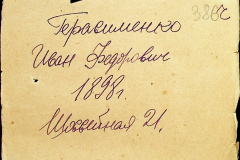 386с
Герасименко
Иван Федорович
1898г.
Шоссейная 21.